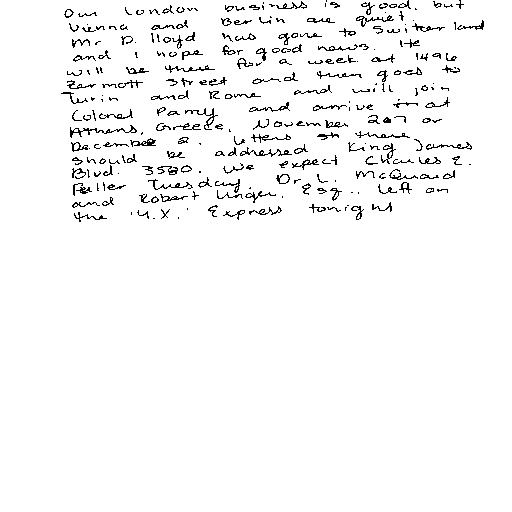 Our London business is good, but
Vienna and Berlin are quiet.
Mr. D. lloyd has gone to Switzerland
and I hope for good news. He
will be there for a week at 1496
Zermott Street and then goes to
Turin and Rome and will join
Colonel Parry and arrive at
Athens, Greece, November 27 or
December 2. letters there
should be addressed King James
Blvd. 3580. We expect Charles E.
Fuller Tuesday. Dr. L. McQuaid
and Robert Unger, Esq., left on
the 'Y.X.' Express tonight